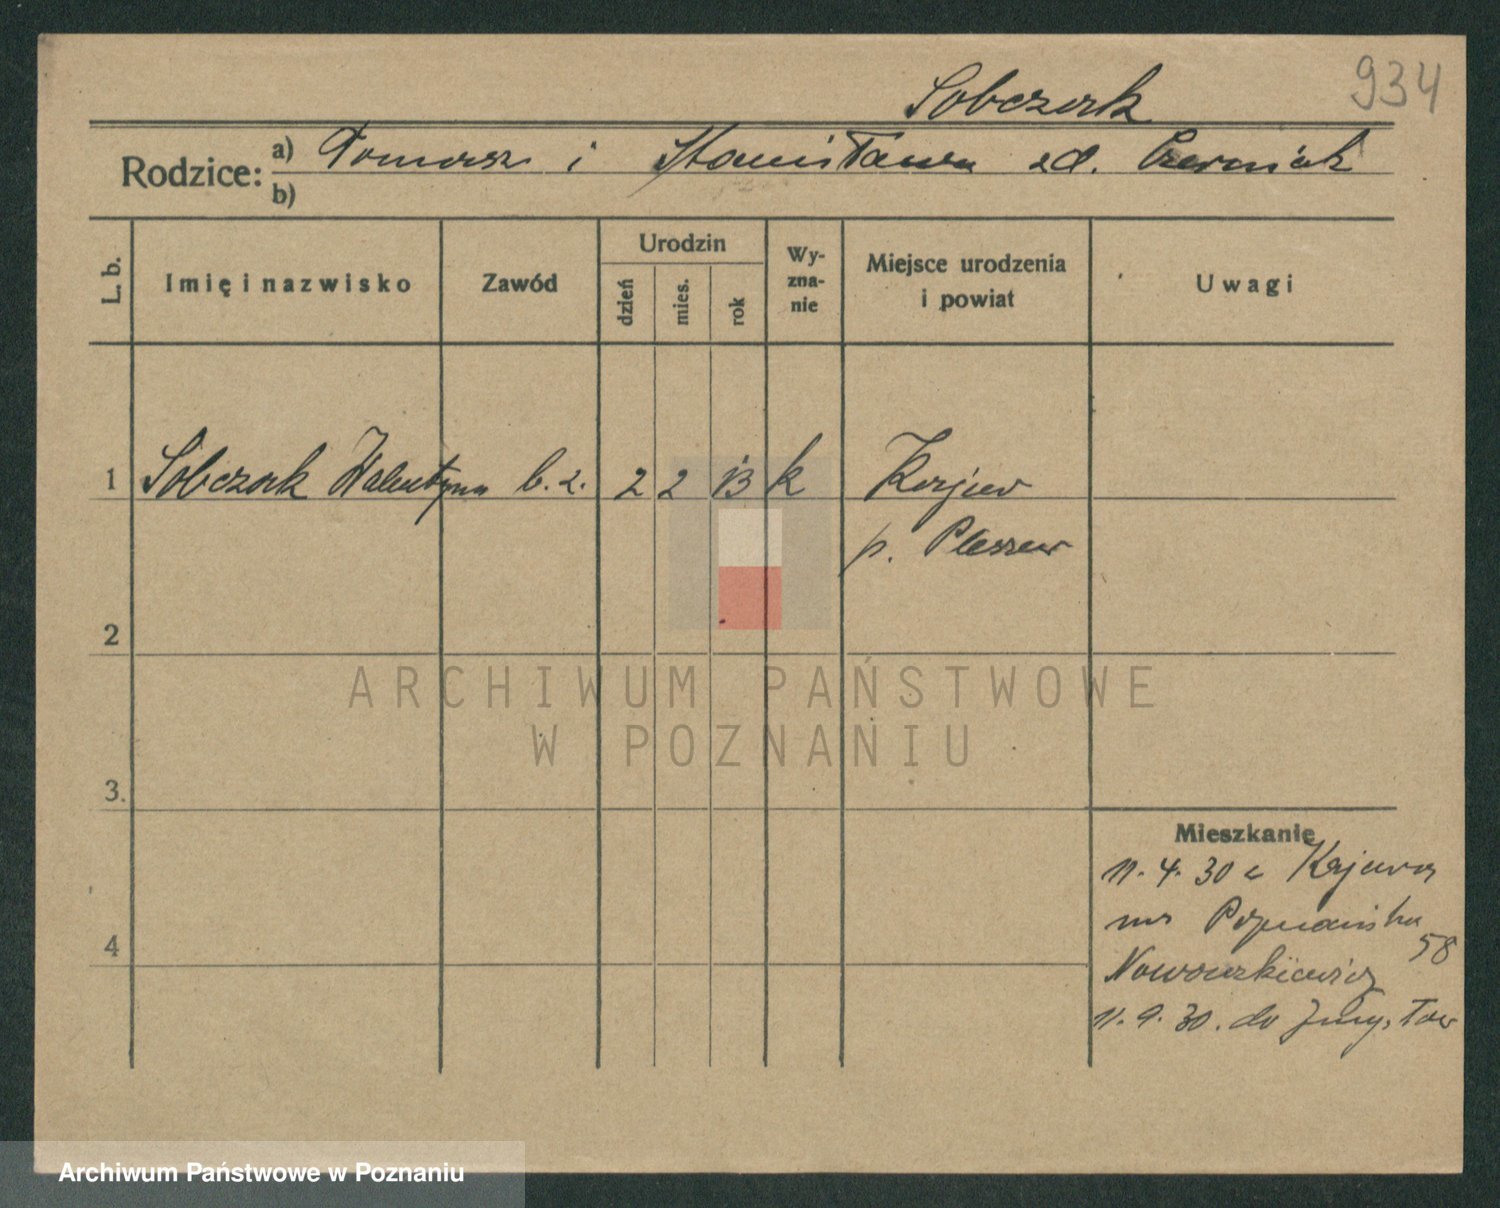 934
Sobczak
Rodzice: a) Tomasz i Stanisława zd. Czerniak
b)
L. b. Imię i nazwisko Zawód Urodzin dzień mies. rok Wy-zna-nie Miejsce urodzenia i powiat Uwagi
1 Sobczak Walentyna b. z. 2 2 13 k Kajew
p. Pleszew
2
ARCHIWUM PAŃSTWOWE
W POZNANIU
3.
Mieszkanie
11. 4. 30 z Kajewa
na Poznańska
4 58
11. 9. 30. do
Archiwum Państwowe w Poznaniu